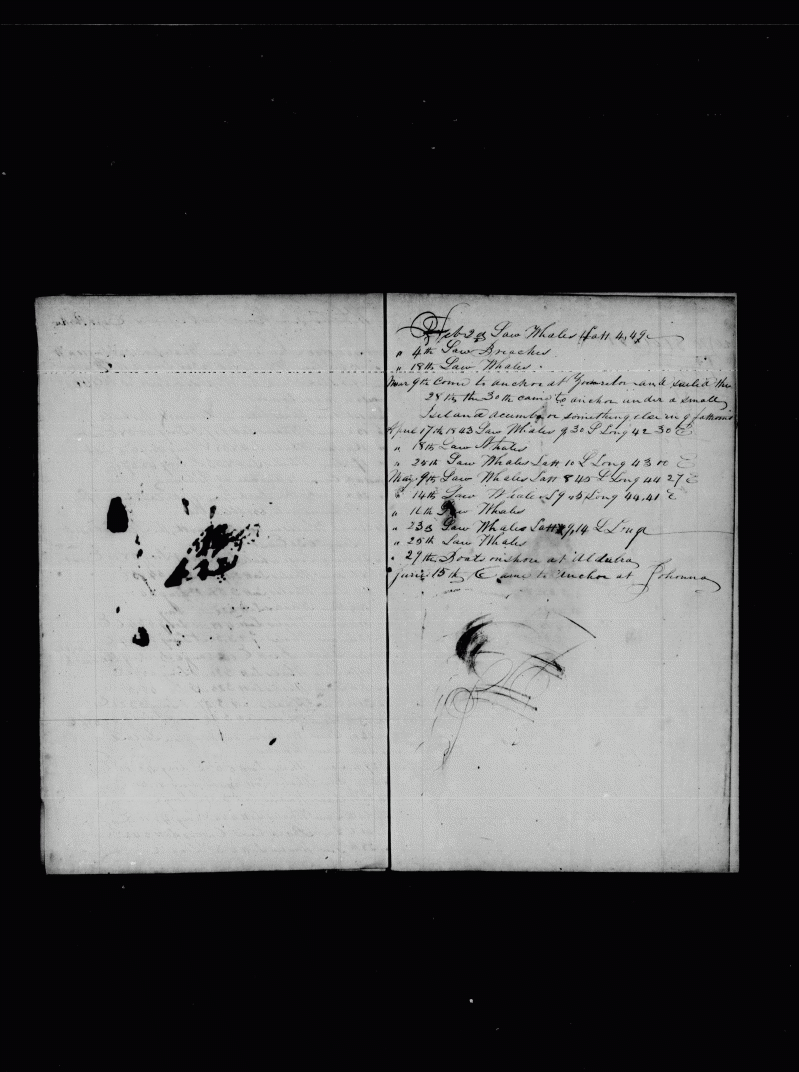 Feb 2d Saw Whales Latt 4.49
" 4th Saw Breaches
" 18th Saw Whales
Mar 9th Come to anchor at and sailed the
28th the 30th came to anchor under a small
Island or something else in 9 fathoms
April 17th 1843 Saw Whales 9 30 S Long 42 30 E
" 18th Saw Whales
" 24th Saw Whales Latt 10 S Long 43 10 E
May 9th Saw Whales Latt 8 45 S Long 44 27 E
" 14th Saw Whales S 9 5 Long 44.41 E
" 16th Saw Whales
" 23d Saw Whales Latt 9,14 S Long
" 25th Saw Whales
" 29th Boats onshore at
June 15th Came to anchor at Johonna